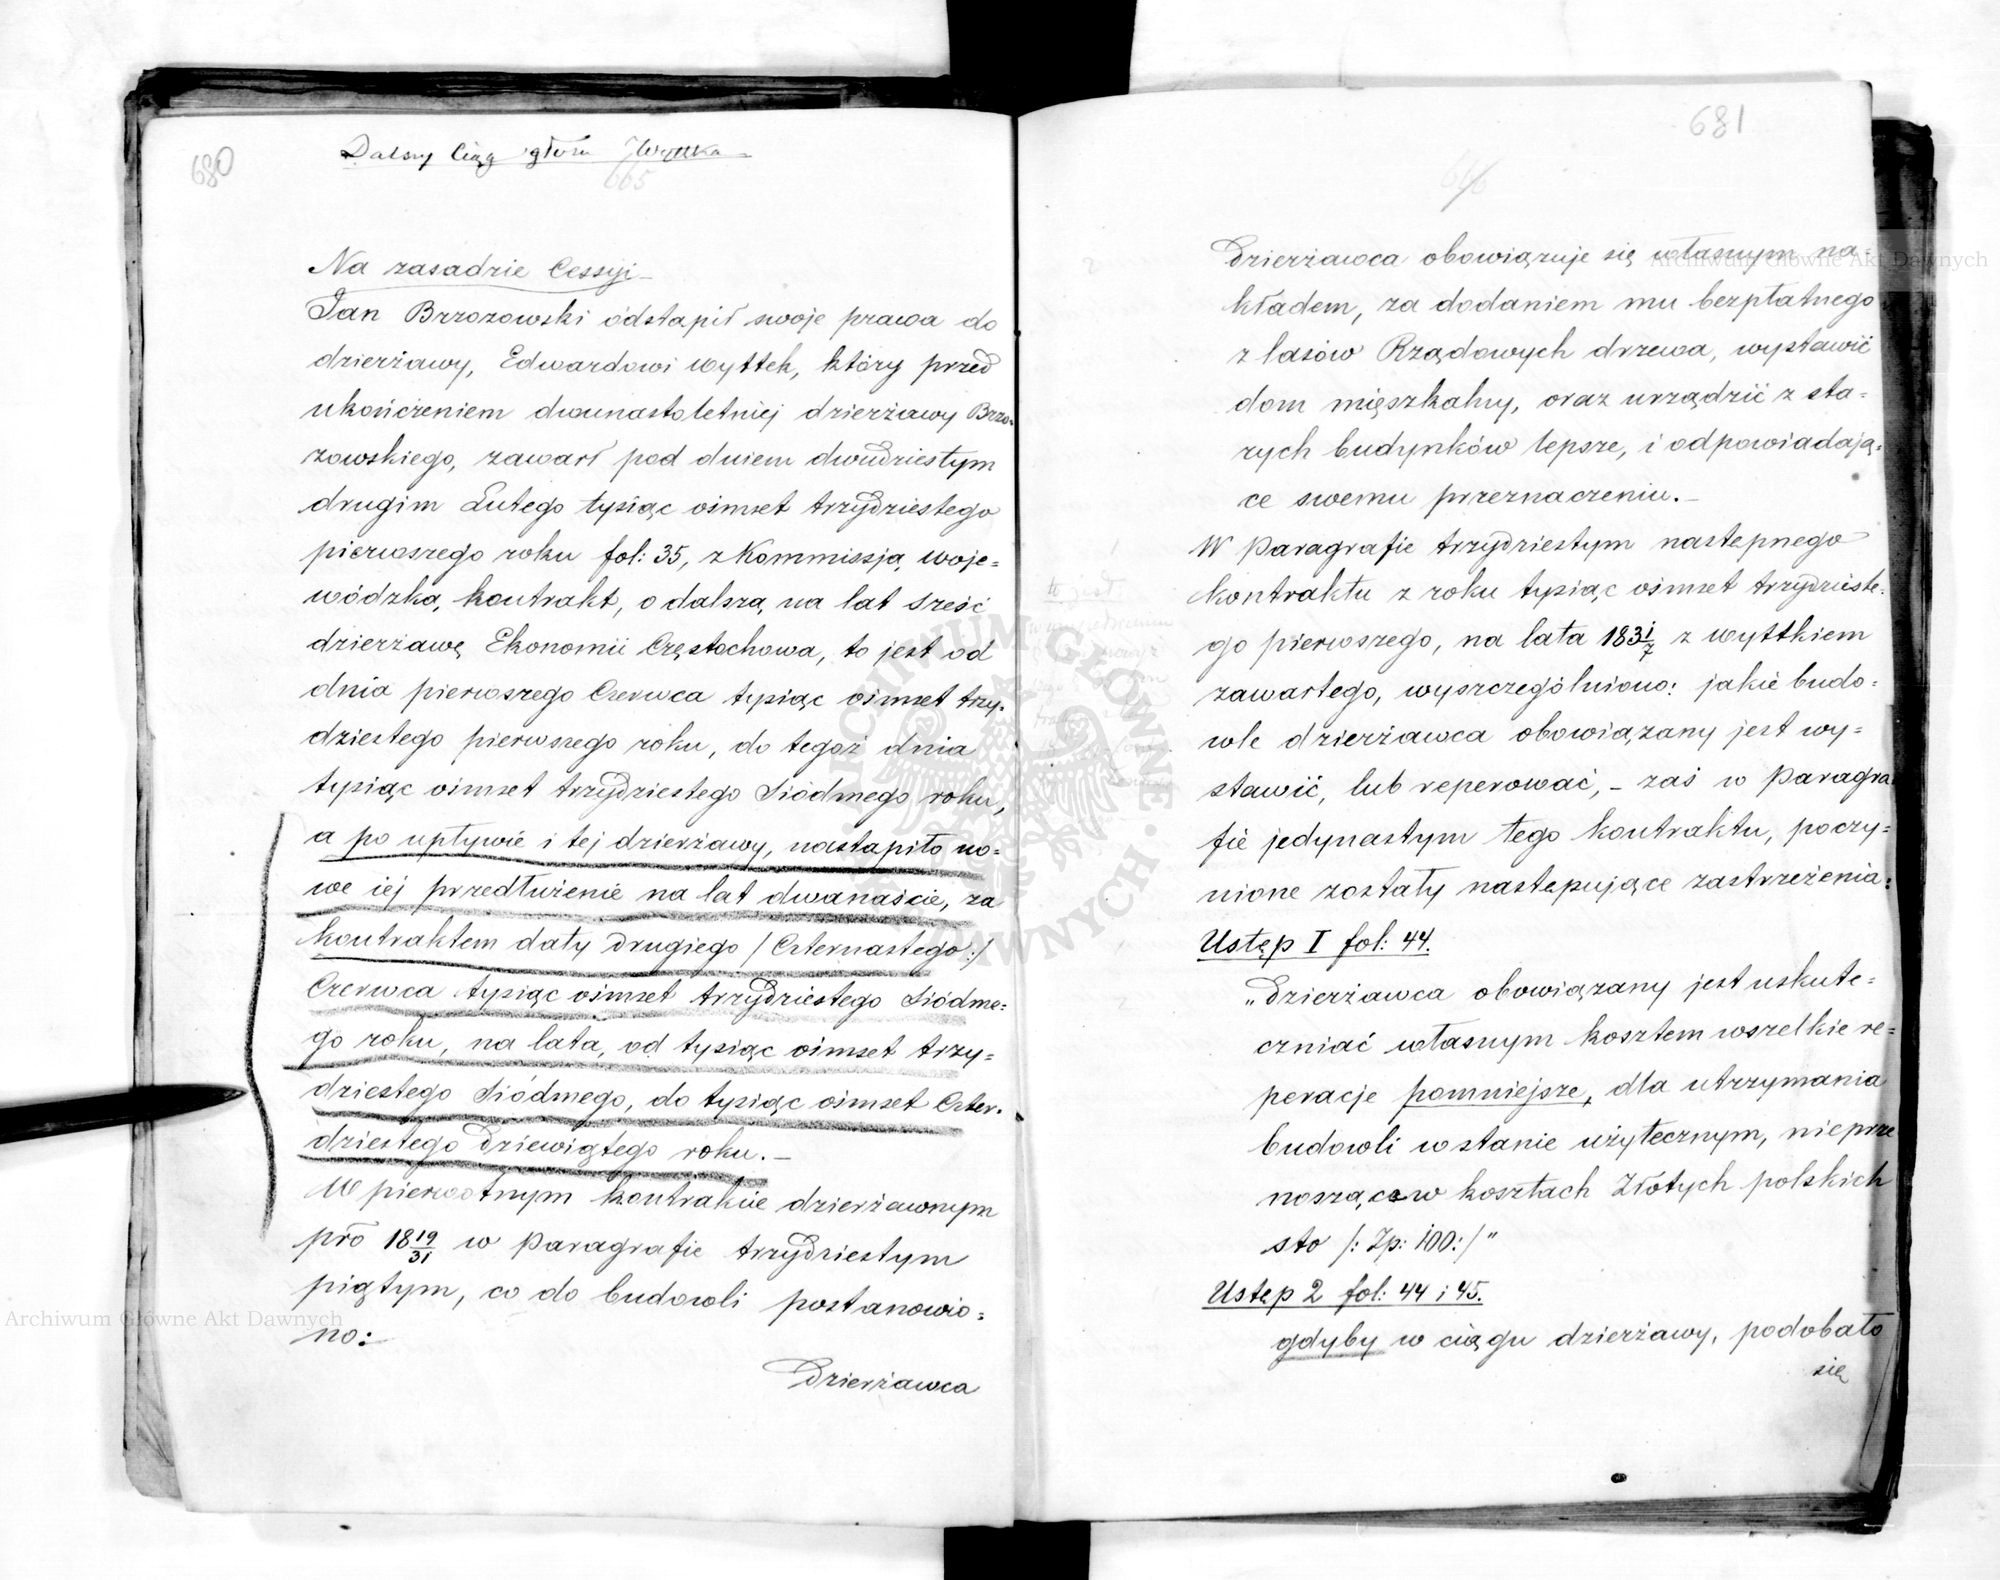 680
Dalszy Ciąg głosu Wyttka
665
Na zasadzie Cessyi
Jan Brzozowski odstąpił swoje prawa do
dzierżawy, Edwardowi Wyttek, który przed
ukończeniem dwunastoletniej dzierżawy Brzo=
zowskiego, zawarł pod dniem dwudziestym
drugim Lutego tysiąc ośmset trzydziestego
pierwszego roku fol: 35, z Kommissją woje=
wódzką, kontrakt, o dalszą, na lat sześć
dzierżawę Ekonomii Częstochowa, to jest od
dnia pierwszego Czerwca tysiąc ośmset trzy=
dziestego pierwszego roku, do tegoż dnia
tysiąc ośmset trzydziestego Siódmego roku,
a po upływie i tej dzierżawy, nastąpiło no=
we jej przedłużenie na lat dwanaście, za
kontraktem daty drugiego /Czternastego:/
Czerwca tysiąc ośmset trzydziestego Siódme=
go roku, na lata, od tysiąc ośmset trzy=
dziestego Siódmego, do tysiąc ośmset Czter=
dziestego Dziewiątego roku. –
W pierwotnym kontrakcie dzierżawnym
pro 18 19/31 w Paragrafie trzydziestym
piątym, co do budowli postanowio=
no:
Dzierżawca
681
666
Dzierżawca obowiązuje się własnym na=
kładem, za dodaniem mu bezpłatnego
z lasów Rządowych drzewa, wystawić
dom mięszkalny, oraz urządzić z sta=
rych budynków lepsze, i odpowiadają=
ce swemu przeznaczeniu. –
W Paragrafie trzydziestym następnego
Kontraktu z roku tysiąc ośmset trzydzieste=
go pierwszego, na lata 183 1/7 z wyttkiem
zawartego, wyszczególniono: jakie budo=
wle dzierżawca obowiązany jest wy=
stawić, lub reperować, – zaś w Paragra
fie jedynastym tego kontraktu, poczy=
nione zostały następujące zastrzeżenia:
Ustęp I fol: 44.
„Dzierżawca obowiązany jest uskute=
czniać własnym kosztem wszelkie re=
peracje pomniejsze, dla utrzymania
budowli w stanie użytecznym, nieprze
noszące w kosztach Złotych polskich
sto /: Zp: 100:/"
Ustęp 2 fol: 44 i 45.
gdyby w ciągu dzierżawy, podobało
się
Archiwum Główne Akt Dawnych
Archiwum Główne Akt Dawnych
ARCHIWUM GŁÓWNE AKT DAWNYCH